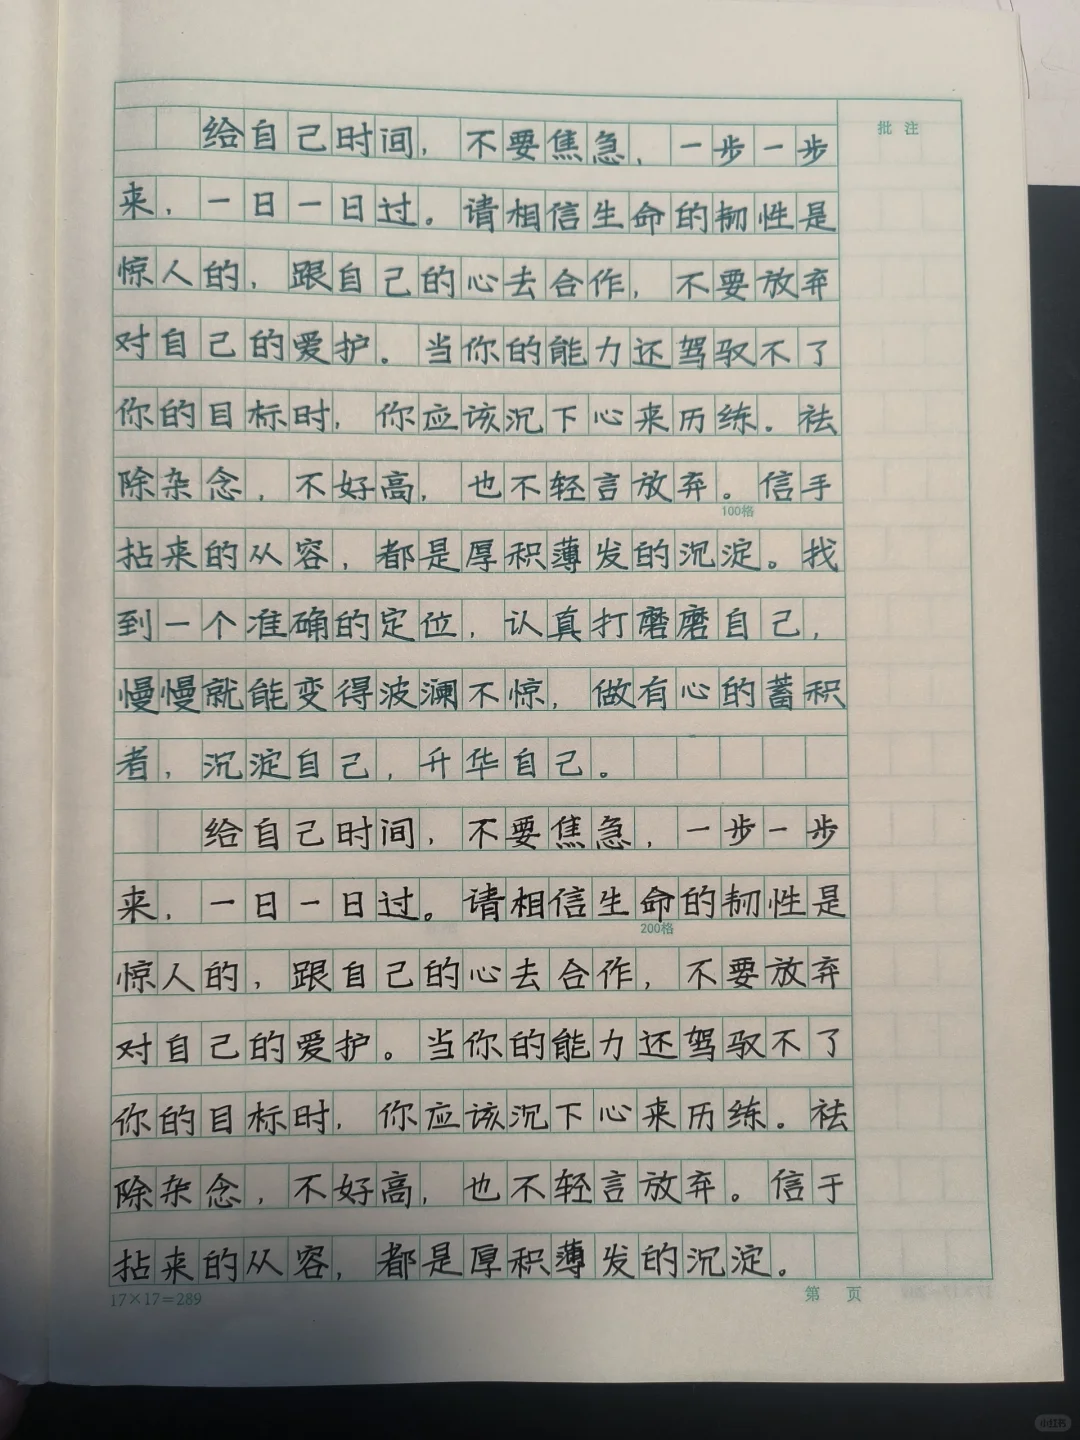 给自己时间，不要焦急，一步一步
来，一日一日过。请相信生命的韧性是
惊人的，跟自己的心去合作，不要放弃
对自己的爱护。当你的能力还驾驭不了
你的目标时，你应该沉下心来历练。祛
除杂念，不好高，也不轻言放弃。信手
100格
拈来的从容，都是厚积薄发的沉淀。找
到一个准确的定位，认真打磨磨自己，
慢慢就能变得波澜不惊，做有心的蓄积
者，沉淀自己，升华自己。
给自己时间，不要焦急，一步一步
来，一日一日过。请相信生命的韧性是
200格
惊人的，跟自己的心去合作，不要放弃
对自己的爱护。当你的能力还驾驭不了
你的目标时，你应该沉下心来历练。祛
除杂念，不好高，也不轻言放弃。信于
拈来的从容，都是厚积薄发的沉淀。
批注
17×17=289
第 页
小红书